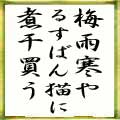 梅雨寒や
るすばん猫に
煮干買う